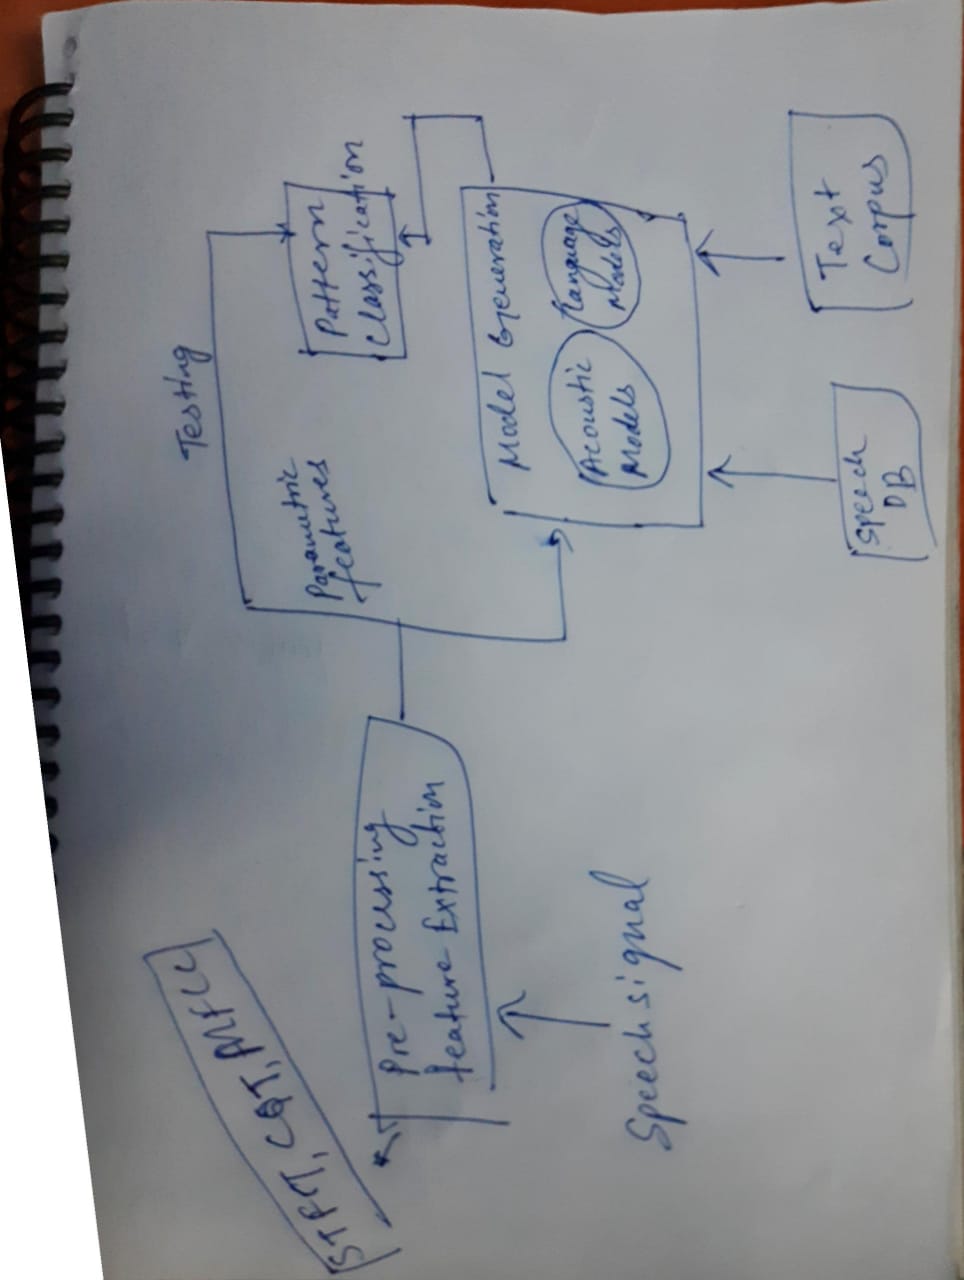 STFT, CQT, MFCC
Pre-processing
Feature Extraction
Speech signal
Testing
Parametric
features
Pattern
Classification
Model Generation
Acoustic
Models
Language
Models
Speech
DB
Text
Corpus